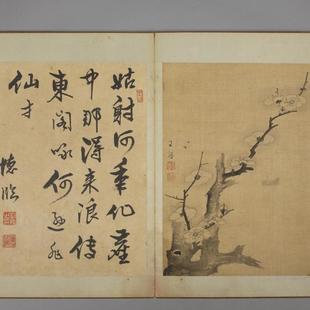 姑射何年化塵
中那得来浪傳
東閣咏何遜非
仙才